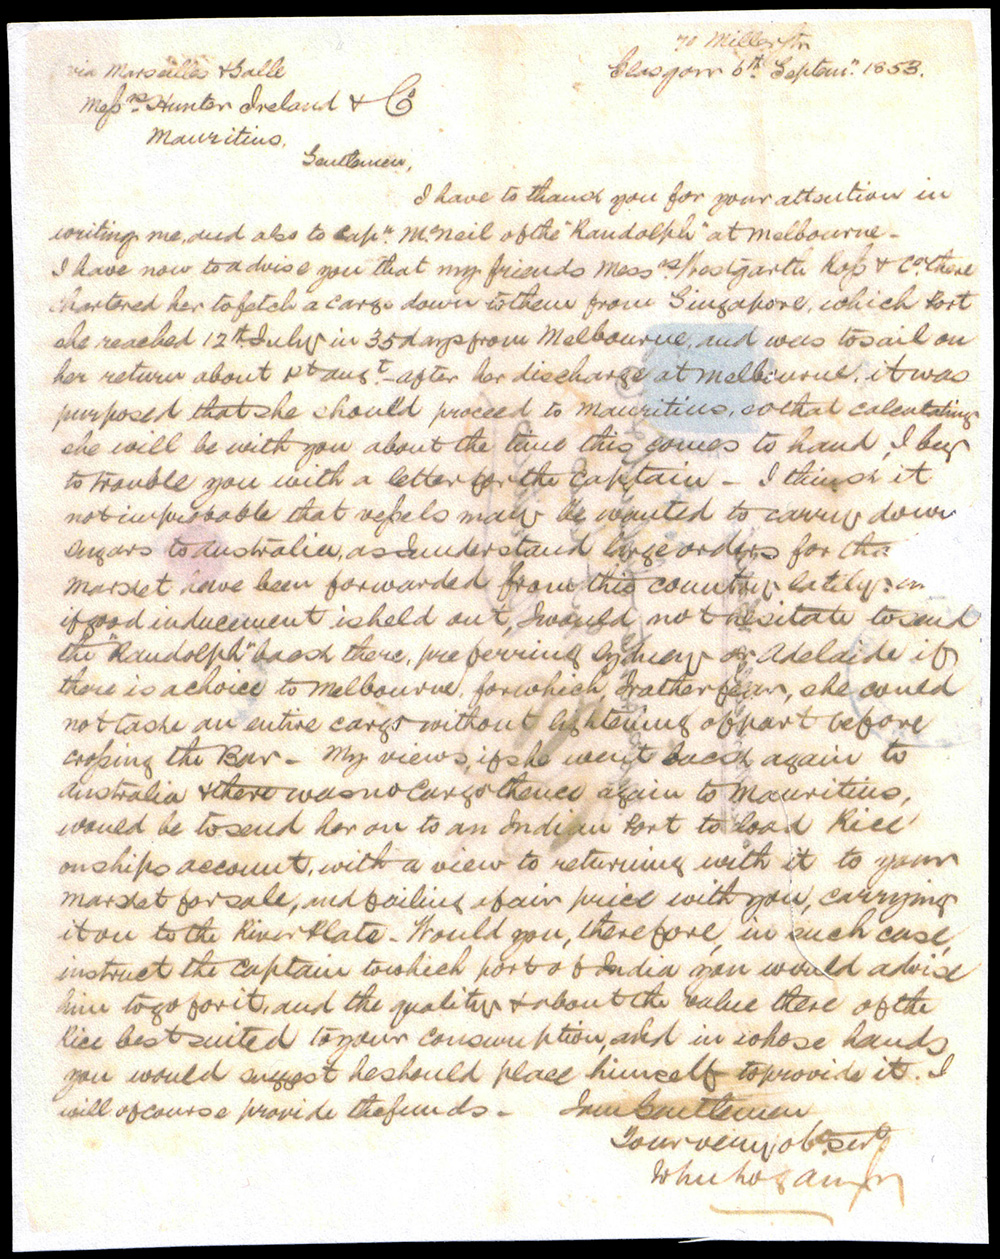 70 Miller Str
Glasgow 6th Septemr. 1853.
via Marseilles & Galle
Messrs. Hunter Ireland & Co
Mauritius.
Gentlemen,
I have to thank you for your attention in
writing me, and also to Capn. McNeil of the "Randolph" at Melbourne -
I have now to advise you that my friends Messrs. Westgarth Ross & Co. there
chartered her to fetch a cargo down to them from Singapore, which Port
she reached 12th. July in 35 days from Melbourne, and was to sail on
her return about 1st Augt. - after her discharge at Melbourne, it was
purposed that she should proceed to Mauritius, so that calculating
she will be with you about the time this comes to hand, I beg
to trouble you with a letter for the Captain - I think it
not improbable that vessels may be wanted to carry down
Sugars to Australia, as I understand large orders for that
market have been forwarded from this country lately:
if good inducement is held out, I would not hesitate to send
the "Randolph" back there, preferring Sydney or Adelaide if
there is a choice to Melbourne, for which, I rather fear, she could
not take an entire cargo without lightening of part before
crossing the Bar - My views, if she went back again to
Australia & there was no Cargo thence again to Mauritius,
would be to send her on to an Indian Port to load Rice
on ships account, with a view to returning with it to your
market for sale, and failing a fair price with you, carrying
it on to the River Plate - Would you, therefore, in such case,
instruct the Captain to which port of India you would advise
him to go for it, and the quality & about the value there of the
Rice best suited to your consumption, and in whose hands
you would suggest he should place himself to provide it. I
will of course provide the funds - I am Gentlemen
Your very obt. Servt.